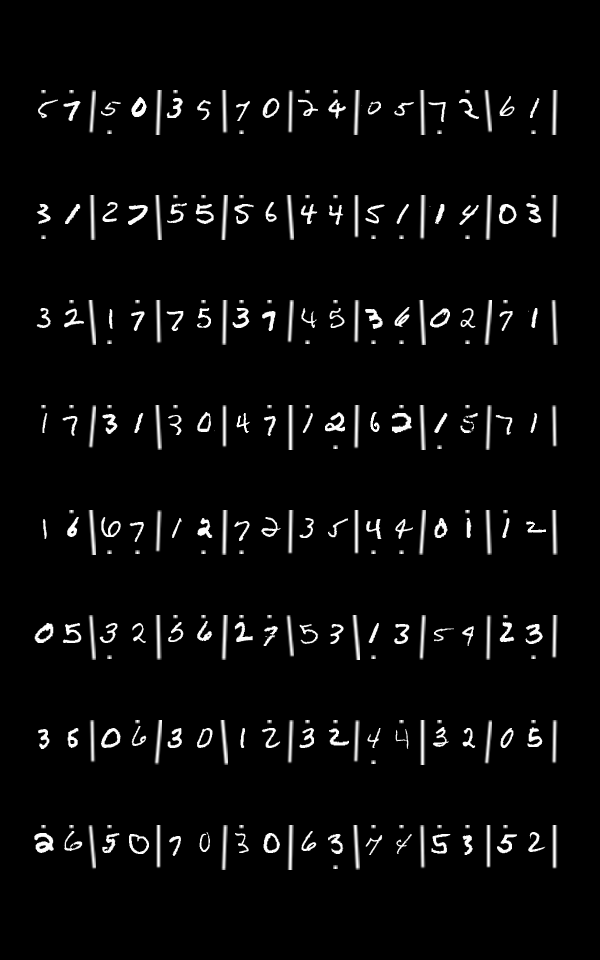 5̇ 7̇ | 5̣ 0 | 3̇ 5 | 7̣ 0 | 2̇ 4̇ | 0 5 | 7̣ 2̇ | 6 1̣ |
3̣ 1 | 2 7 | 5̇ 5̇ | 5̇ 6 | 4̇ 4̇ | 5̣ 1̣ | 1 4̣ | 0 3̇ |
3 2̇ | 1̣ 7̇ | 7 5̇ | 3̇ 7̇ | 4̣ 5̇ | 3̣ 6̣ | 0 2̣ | 7̇ 1 |
1̇ 7̇ | 3̇ 1 | 3̇ 0 | 4 7̇ | 1̇ 2̣ | 6 2̇ | 1̣ 5̇ | 7 1 |
1 6̇ | 6̣ 7̣ | 1 2̣ | 7̣ 2 | 3 5 | 4̣ 4̣ | 0 1̇ | 1̇ 2 |
0 5 | 3̣ 2 | 5̇ 6̇ | 2̇ 7̇ | 5 3 | 1̣ 3 | 5 4 | 2̇ 3̣ |
3 6 | 0 6̇ | 3 0 | 1 2̇ | 3̇ 2̇ | 4̣ 4̇ | 3̇ 2 | 0 5̇ |
2̇ 6̇ | 5̇ 0 | 7 0 | 3̇ 0 | 6 3̣ | 7̇ 4̇ | 5̇ 3̇ | 5̇ 2 |